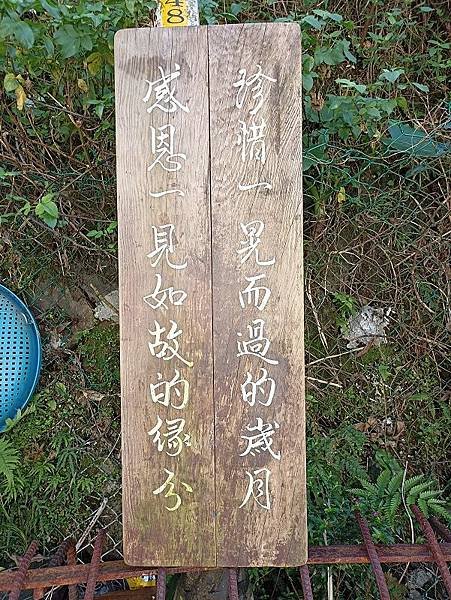 珍惜一晃而過的歲月
感恩一見如故的緣分
48